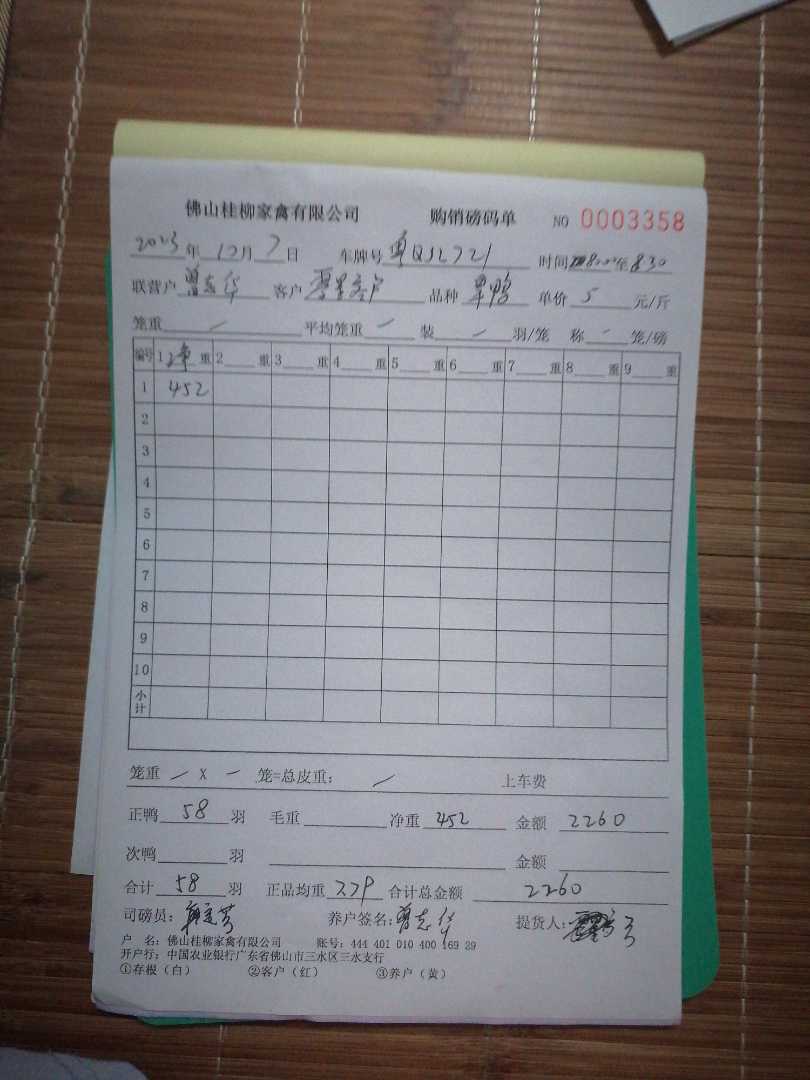 佛山桂柳家禽有限公司 购销磅码单 NO 0003358
2023年12月7日 车牌号 粤QJL721 时间 800至830
联营户 曾志华 客户 零星客户 品种 单价 5 元/斤
笼重 / 平均笼重 - 装 - 羽/笼 称 - 笼/磅
编号 1 重 2 重 3 重 4 重 5 重 6 重 7 重 8 重 9 重
1 452
2
3
4
5
6
7
8
9
10
小计
笼重 / X - 笼=总皮重: / 上车费
正鸭 58 羽 毛重 净重 452 金额 2260
次鸭 羽 金额
合计 58 羽 正品均重 7.79 合计总金额 2260
司磅员: 养户签名: 曾志华 提货人:
户 名: 佛山桂柳家禽有限公司 账号: 444 401 010 400 169 29
开户行: 中国农业银行广东省佛山市三水区三水支行
①存根(白) ②客户(红) ③养户(黄)